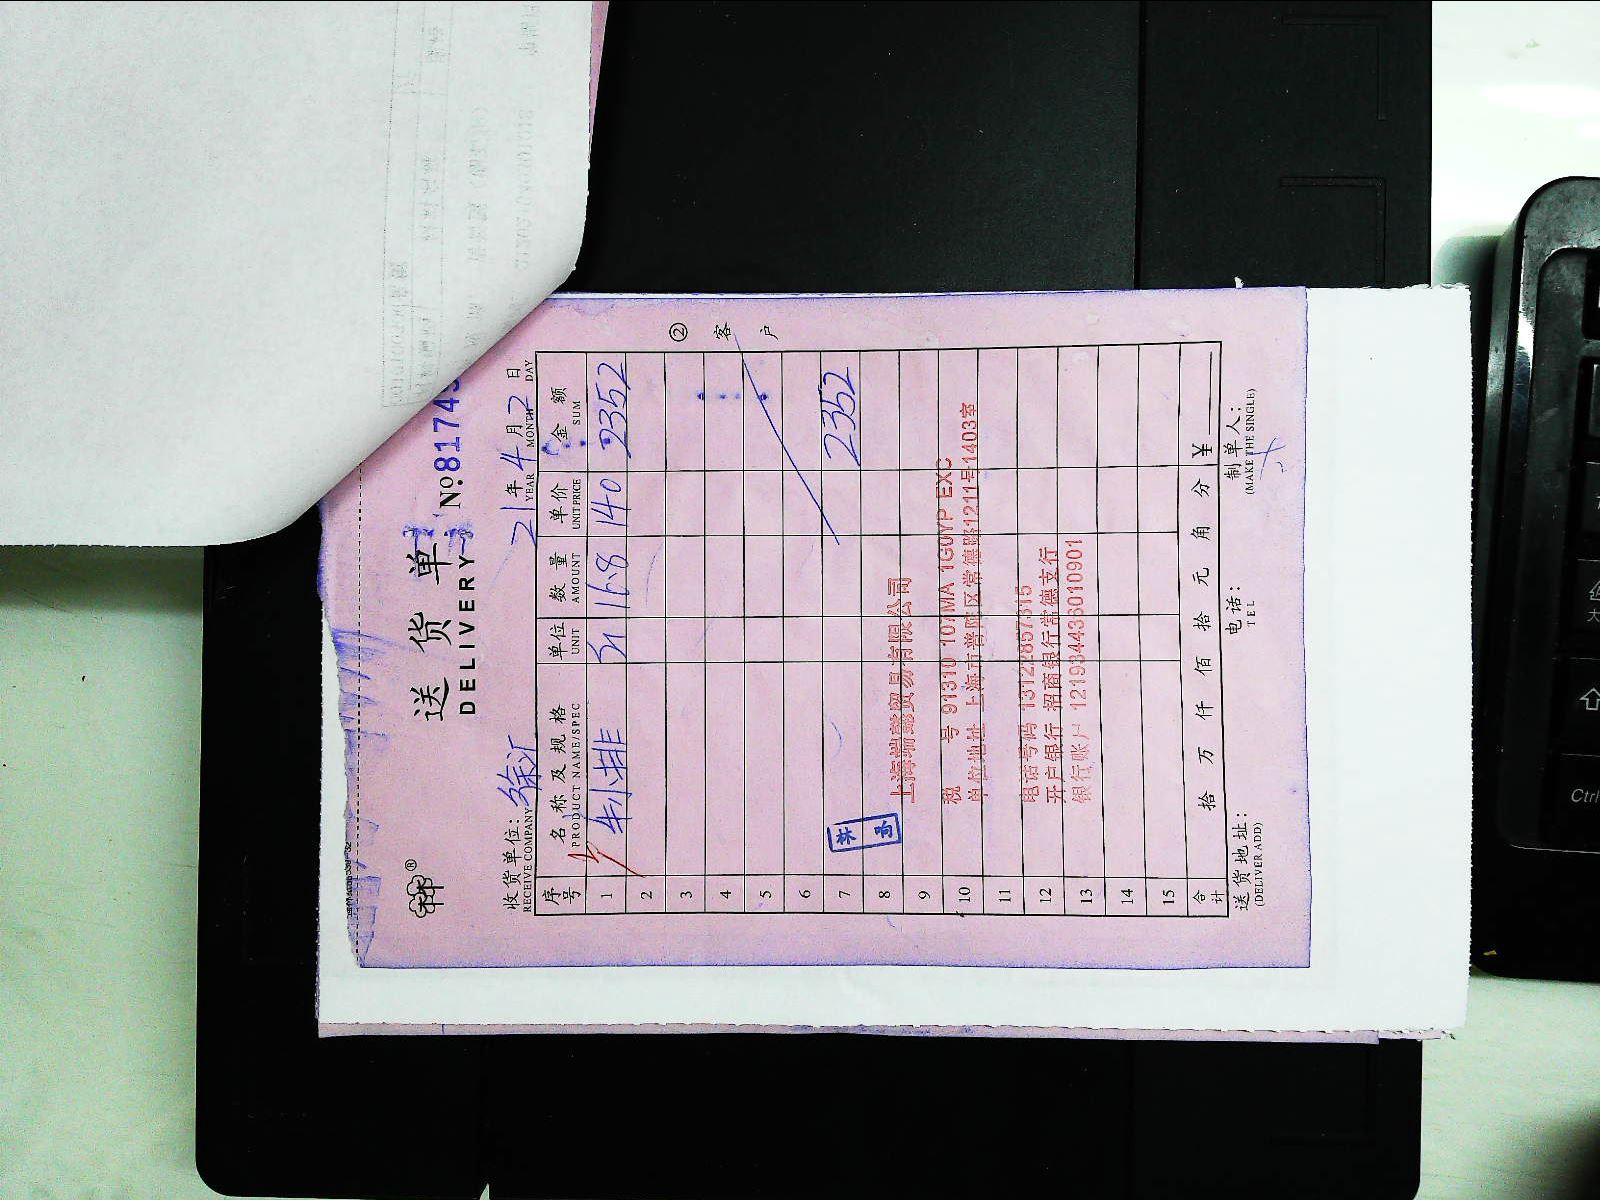 送 货 单
DELIVERY
Nº 8174
收货单位: 徐汇
RECEIVE COMPANY
21 年 4 月 2 日
YEAR MONTH DAY
序号 名称及规格 单位 数量 单价 金额
PRODUCT NAME/SPEC UNIT AMOUNT UNIT PRICE SUM
1 牛小排 斤 16.8 140 2352
2
3
4
5
6
7 2352
8
9
10
11
12
13
14
15
② 客户
上海端懿贸易有限公司
税 号 91310 107MA 1G0YP EXC
单位地址 上海市普陀区常德路1211号1403室
电话号码 13122857315
开户银行 招商银行常德支行
银行账户 121934436010901
合计 拾 万 仟 佰 拾 元 角 分 ¥
送货地址: 电话: 制单人:
(DELIVER ADD) TEL (MAKE THE SINGLE)
Ctrl